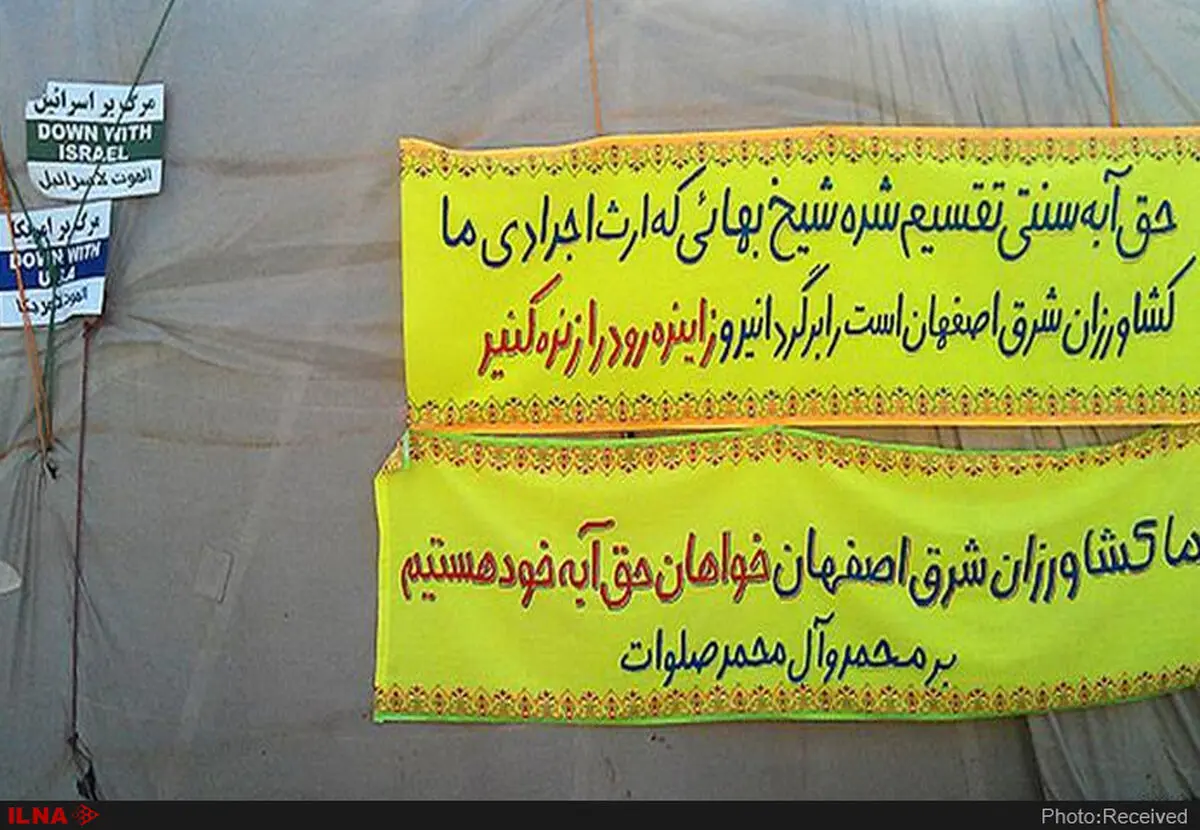 مرگ بر اسرائیل
DOWN WITH
ISRAEL
الموت لاسرائیل
مرگ بر امریکا
DOWN WITH
USA
الموت لامریکا
حق آبه سنتی تقسیم شده شیخ بهائی که ارث اجدادی ما
کشاورزان شرق اصفهان است را برگردانید و زاینده رود را زنده کنید
ما کشاورزان شرق اصفهان خواهان حق آبه خود هستیم
بر محمد و آل محمد صلوات
ILNA
Photo:Received